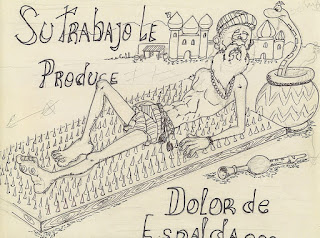 Su trabajo Le
Produce
Dolor de
Espalda...